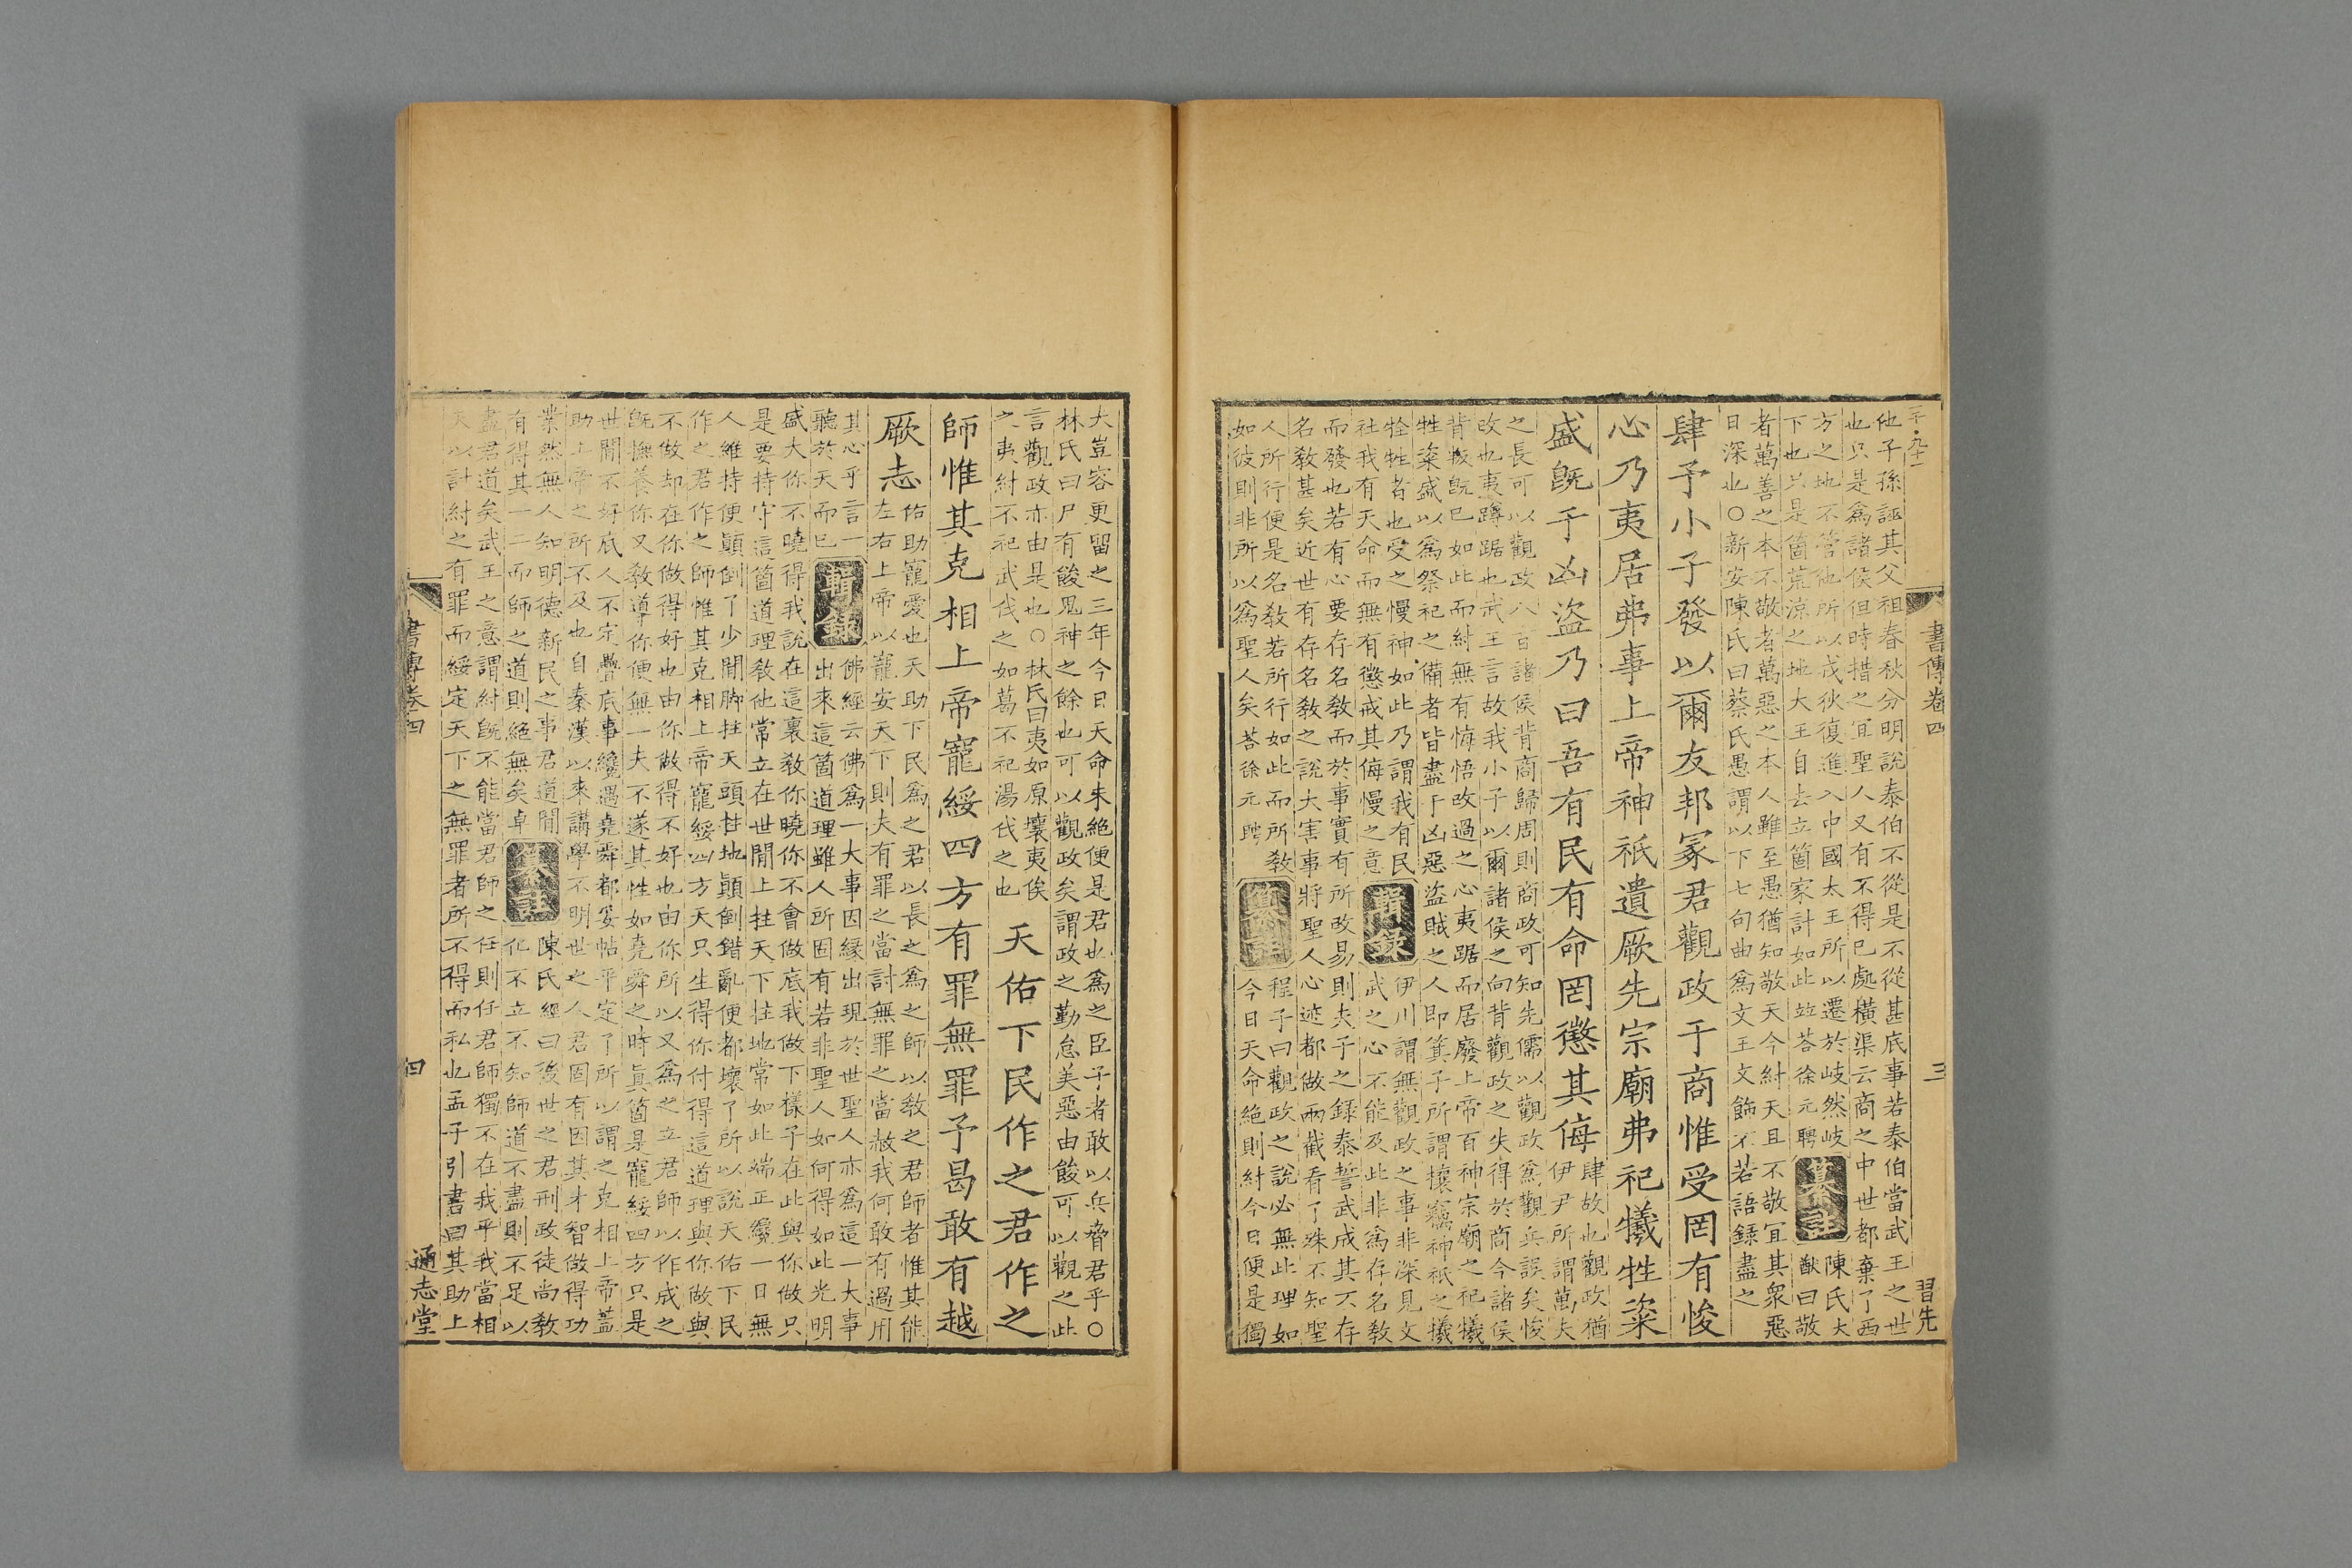 他子孫誣其父祖春秋分明說泰伯不從是不從甚底事若泰伯當武王之世
也只是爲諸侯但時措之宜聖人又有不得已處橫渠云商之中世都棄了西
方之地不管他所以戎狄復進入中國太王所以遷於岐然岐
下也只是箇荒涼之地大王自去立箇家計如此並荅徐元聘
纂註
陳氏大
猷曰敬
者萬善之本不敬者萬惡之本人雖至愚猶知敬天今紂天且不敬宜其衆惡
日深也○新安陳氏曰蔡氏愚謂以下七句曲爲文王文飾不若語録盡之
肆予小子發以爾友邦冢君觀政于商惟受罔有悛
心乃夷居弗事上帝神祇遺厥先宗廟弗祀犧牲粢
盛旣于凶盜乃曰吾有民有命罔懲其侮
肆故也觀政猶
伊尹所謂萬夫
之長可以觀政八百諸侯背商歸周則商政可知先儒以觀政爲觀兵誤矣悛
改也夷蹲踞也武王言故我小子以爾諸侯之向背觀政之失得於商今諸侯
背叛旣已如此而紂無有悔悟改過之心夷踞而居廢上帝百神宗廟之祀犧
牲粢盛以爲祭祀之備者皆盡于凶惡盜賊之人即箕子所謂攘竊神祇之犧
牷牲者也受之慢神如此乃謂我有民
社我有天命而無有懲戒其侮慢之意
輯錄
伊川謂無觀政之事非深見文
武之心不能及此非爲存名教
而發也若有心要存名教而於事實有所改易則夫子之録泰誓武成其不存
名教甚矣近世有存名教之說大害事將聖人心迹都做兩截看了殊不知聖
人所行便是名教若所行如此而所教
如彼則非所以爲聖人矣荅徐元聘
纂註
程子曰觀政之說必無此理如
今日天命絕則紂今日便是獨
書傳卷四
三
習先
大豈容更留之三年今日天命未絕便是君也爲之臣子者敢以兵脅君乎○
林氏曰尸有餕鬼神之餘也可以觀政矣謂政之勤怠美惡由餕可以觀之此
言觀政亦由是也○林氏曰夷如原壤夷俟
之夷紂不祀武伐之如葛不祀湯伐之也
天佑下民作之君作之
師惟其克相上帝寵綏四方有罪無罪予曷敢有越
厥志
佑助寵愛也天助下民爲之君以長之爲之師以教之君師者惟其能
左右上帝以寵安天下則夫有罪之當討無罪之當赦我何敢有過用
其心乎言一
聽於天而已
輯錄
佛經云佛爲一大事因緣出現於世聖人亦爲這一大事
出來這箇道理雖人所固有若非聖人如何得如此光明
盛大你不曉得我說在這裏教你曉你不會做底我做下樣子在此與你做只
是要持守這箇道理教他常立在世間上拄天下拄地常如此端正纔一日無
人維持便顚倒了少間脚拄天頭拄地顚倒錯亂便都壞了所以說天佑下民
作之君作之師惟其克相上帝寵綏四方天只生得你付得這道理與你做與
不做却在你做得好也由你做得不好也由你所以又爲之立君師以作成之
旣撫養你又教導你便無一夫不遂其性如堯舜之時眞箇是寵綏四方只是
世間不好底人不定疊底事纔遇堯舜都妥帖平定了所以謂之克相上帝蓋
助上帝之所不及也自秦漢以來講學不明世之人君固有因其才智做得功
業然無人知明德新民之事君道間
有得其一二而師之道則絕無矣卓
纂註
陳氏經曰後世之君刑政徒尚教
化不立不知師道不盡則不足以
盡君道矣武王之意謂紂旣不能當君師之任則任君師獨不在我乎我當相
天以討紂之有罪而綏定天下之無罪者所不得而私也孟子引書曰其助上
書傳卷四
四
通志堂